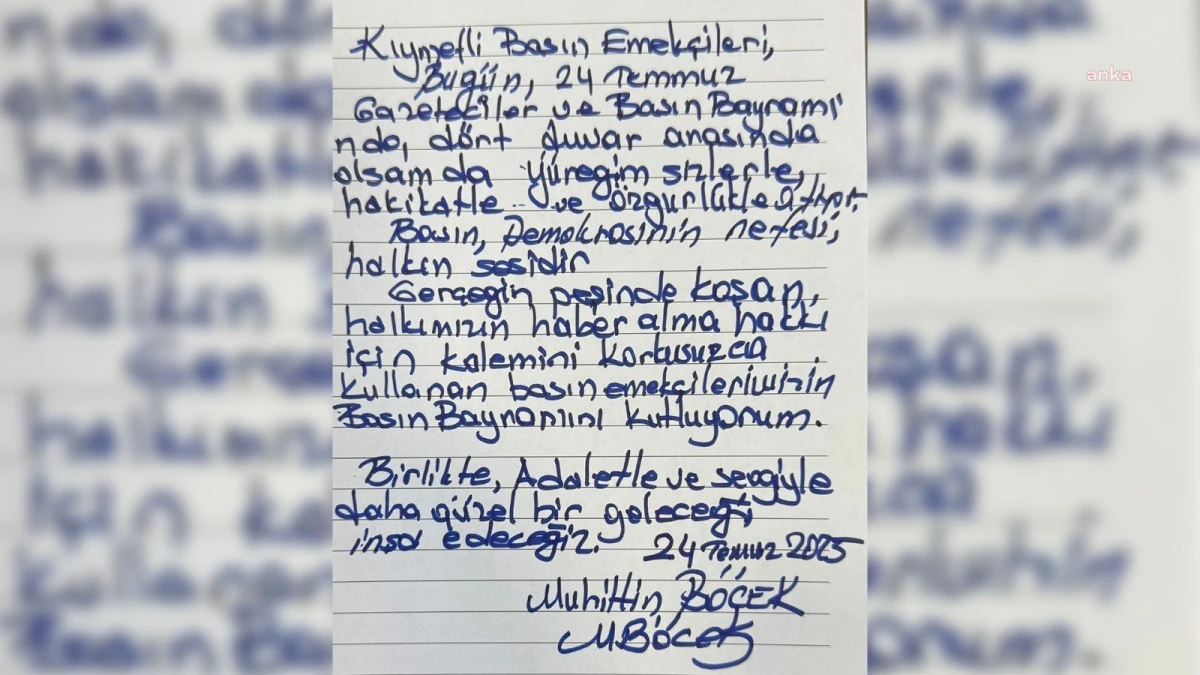 Kıymetli Basın Emekçileri,
Bugün, 24 Temmuz
Gazeteciler ve Basın Bayramı'
nda, dört duvar arasında
olsam da yüreğim sizlerle,
hakikatle ve özgürlükle atıyor.
Basın, Demokrasinin nefesi,
halkın sesidir
Gerçeğin peşinde koşan,
halkımızın haber alma hakkı
için kalemini korkusuzca
kullanan basın emekçilerimizin
Basın Bayramını kutluyorum.
Birlikte, Adaletle ve sevgiyle
daha güzel bir geleceği
inşa edeceğiz. 24 Temuz 2025
Muhittin BÖÇEK
M.Böcek
anka